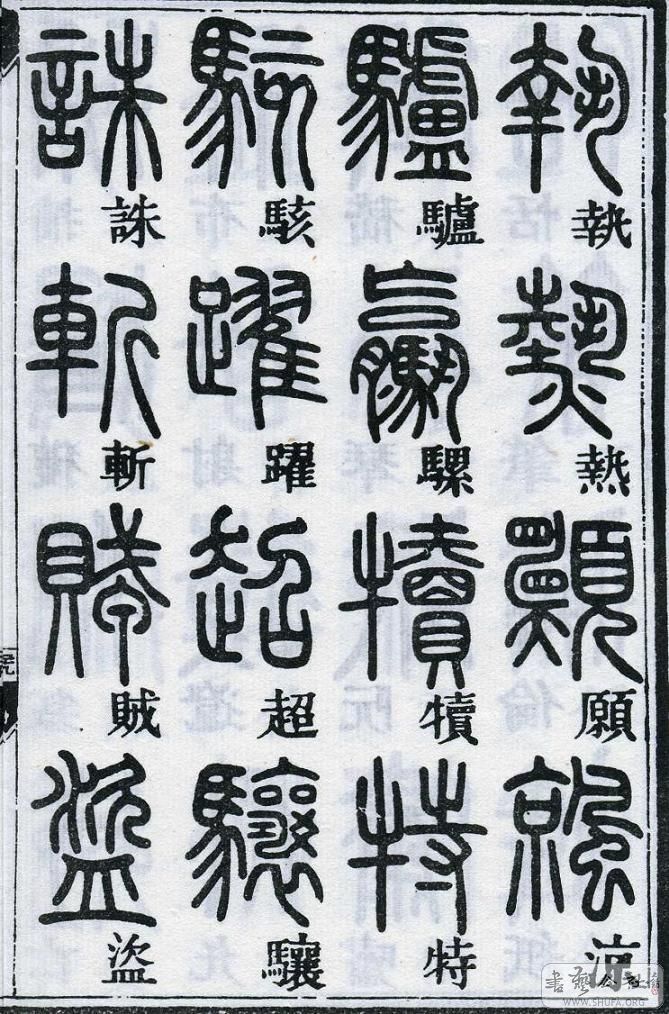 執熱願涼
驢騾犢特
駭躍超驤
誅斬賊盜
書藝公社
WWW.SHUFA.ORG